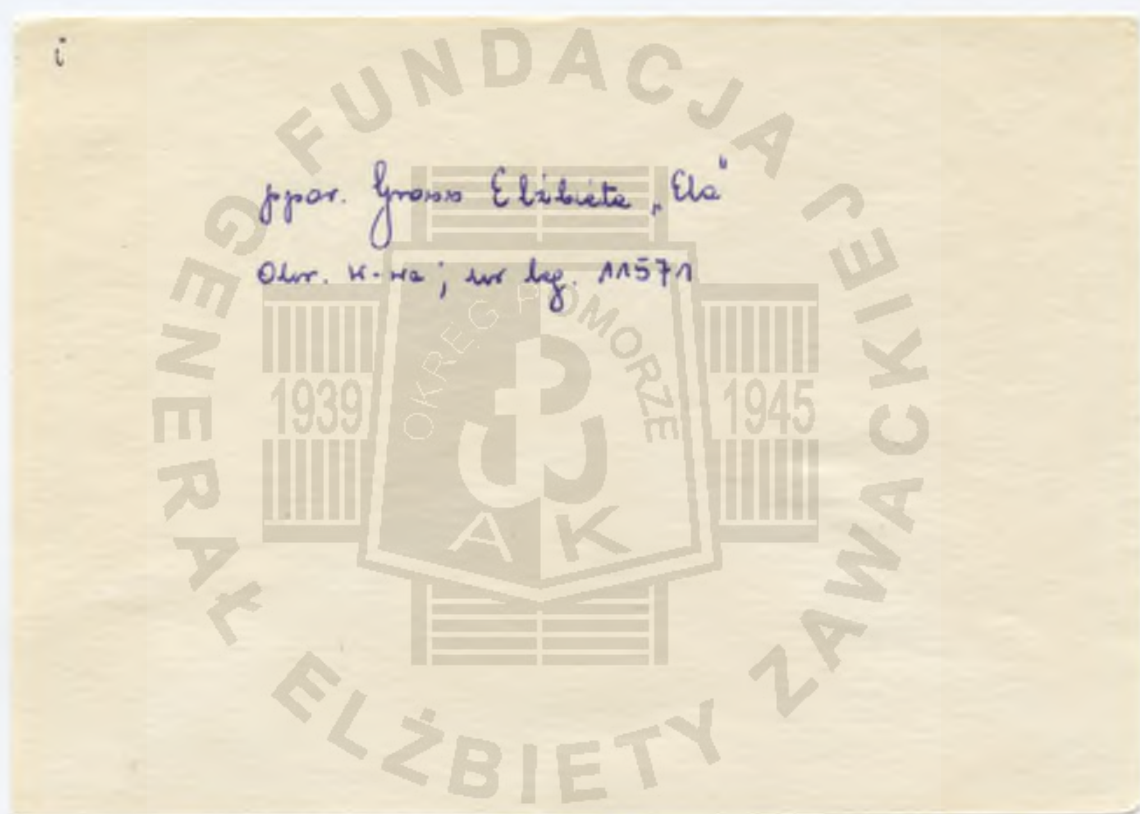 i
ppor. Gross Elżbieta „Ela"
Obr. W-wa; nr leg. 11571
FUNDACJA GENERAŁ ELŻBIETY ZAWACKIEJ
OKRĘG POMORZE
1939 1945
AK